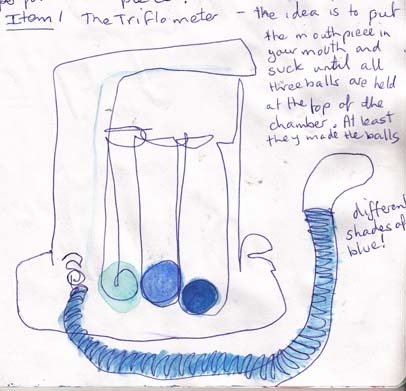 piece!
Item 1 The Triflometer - the idea is to put
the mouthpiece in
your mouth and
suck until all
three balls are held
at the top of the
chamber. At least
they made the balls
different
shades of
blue!